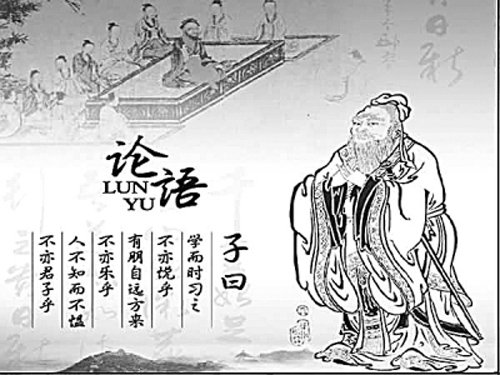 论語
LUN
YU
子曰
学而时习之
不亦悦乎
有朋自远方来
不亦乐乎
人不知而不愠
不亦君子乎